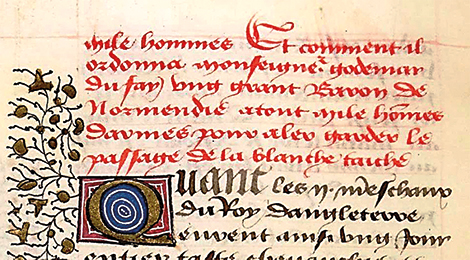 mile hommes Et comment il
ordonna monseigner godemar
du fay ung grant Baron de
Normendie atout mile hommes
darmes pour aler garder le
passage de la blanche tache
Quant les ij. mareschaux
du Roy dangleterre
eurent ainsi ung jour